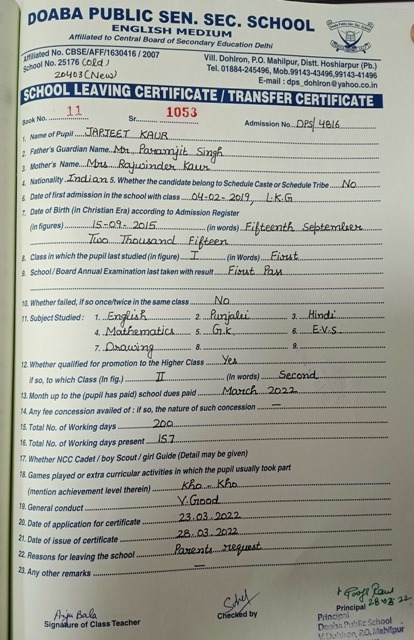 DOABA PUBLIC SEN. SEC. SCHOOL
ENGLISH MEDIUM
Affiliated to Central Board of Secondary Education Delhi
Affiliated No. CBSE/AFF/1630416 / 2007
School No. 25176 (old)
20403 (New)
Vill. Dohlron, P.O. Mahilpur, Distt. Hoshiarpur (Pb.)
Tel. 01884-245496, Mob.99143-43496,99143-41496
E-mail : dps_dohlron@yahoo.co.in
SCHOOL LEAVING CERTIFICATE / TRANSFER CERTIFICATE
Book No. 11 Sr. 1053 Admission No. DPS/4816
1. Name of Pupil JAPJEET KAUR
2. Father's Guardian Name Mr. Paramjit Singh
3. Mother's Name Mrs. Rajwinder Kaur
4. Nationality Indian 5. Whether the candidate belong to Schedule Caste or Schedule Tribe No
6. Date of first admission in the school with class 04-02-2019, L.K.G
7. Date of Birth (in Christian Era) according to Admission Register
(in figures) 15-09-2015 (in words) Fifteenth September
Two Thousand Fifteen
8. Class in which the pupil last studied (in figure) I (in Words) First
9. School / Board Annual Examination last taken with result First Pass
10. Whether failed, if so once/twice in the same class No
11. Subject Studied : 1. English 2. Punjabi 3. Hindi
4. Mathematics 5. G.K. 6. E.V.S.
7. Drawing 8. 9.
12. Whether qualified for promotion to the Higher Class Yes
if so, to which Class (In fig.) II (In words) Second
13. Month up to the (pupil has paid) school dues paid March 2022
14. Any fee concession availed of : if so, the nature of such concession —
15. Total No. of Working days 200
16. Total No. of Working days present 157
17. Whether NCC Cadet / boy Scout / girl Guide (Detail may be given)
18. Games played or extra curricular activities in which the pupil usually took part
(mention achievement level therein) Kho Kho
19. General conduct V.Good
20. Date of application for certificate 23.03.2022
21. Date of issue of certificate 28.03.2022
22. Reasons for leaving the school Parents request
23. Any other remarks —
Anju Bala
Signature of Class Teacher
Checked by
Principal 28.03.22
Principal
Doaba Public School
V. Dohlron, P.O. Mahilpur